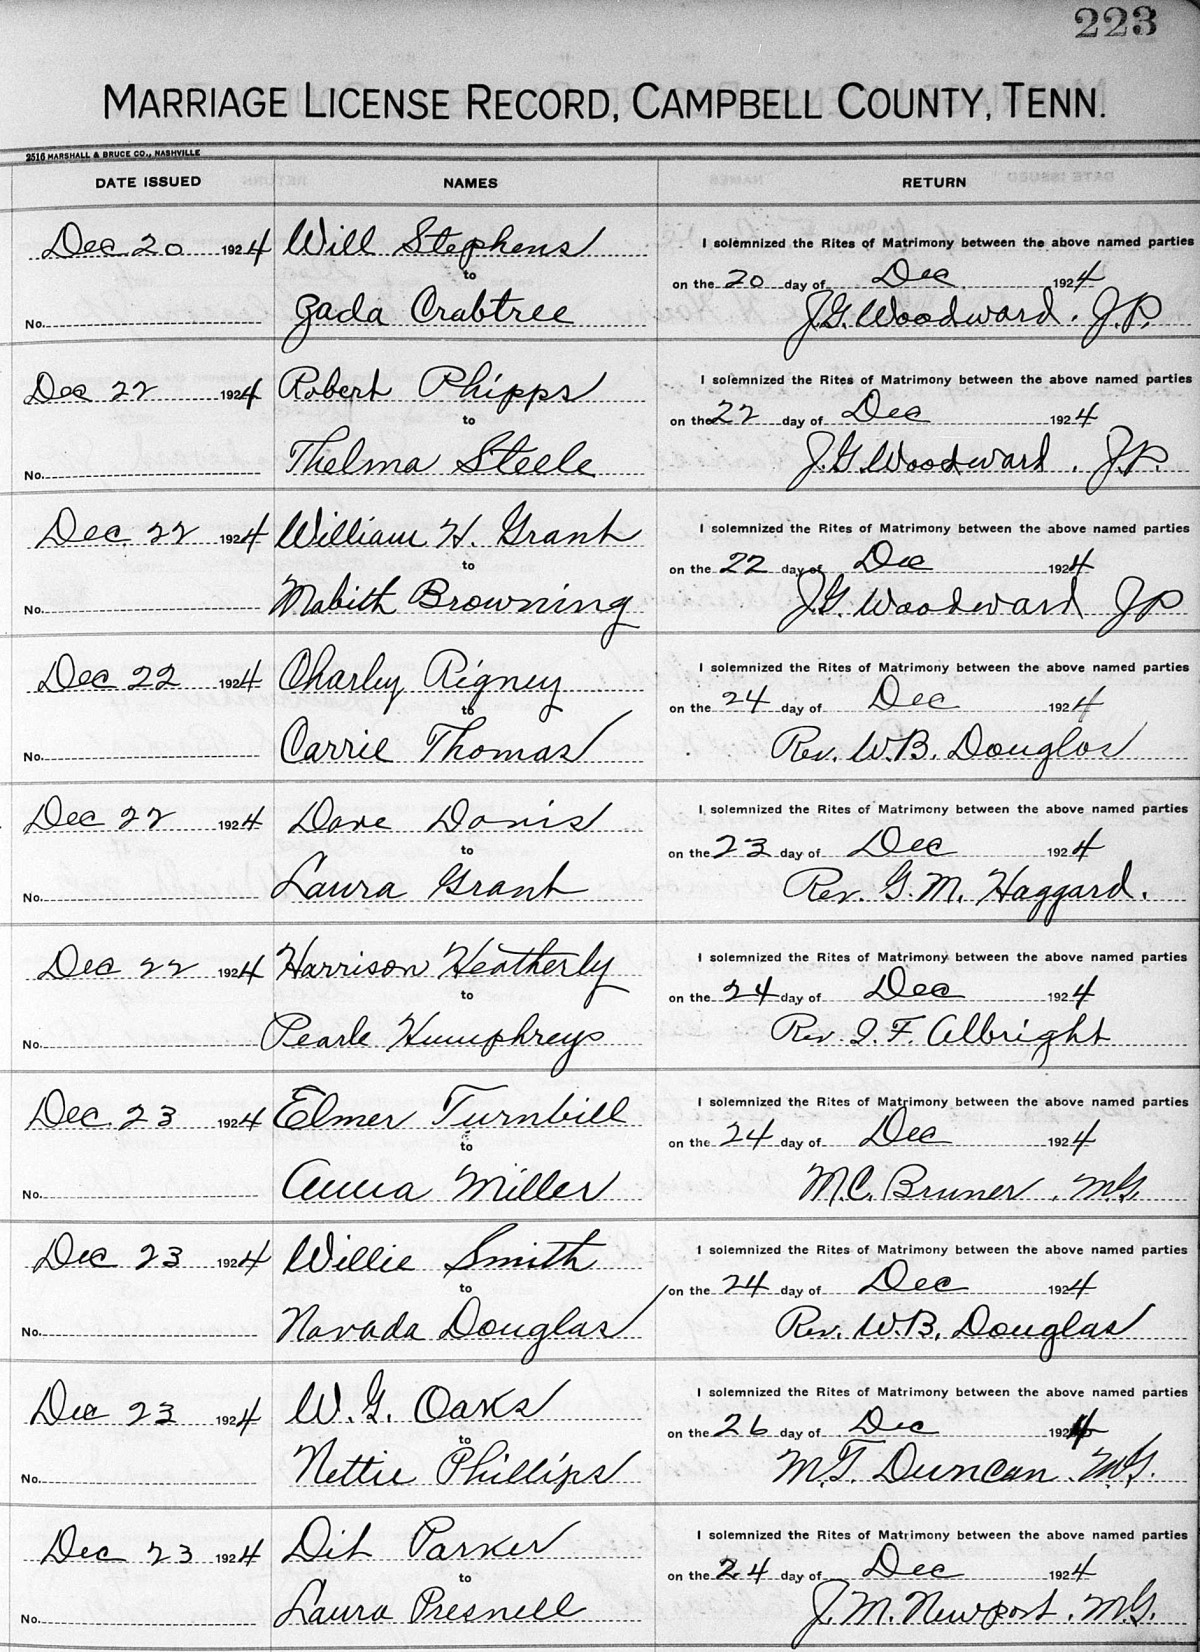 223
MARRIAGE LICENSE RECORD, CAMPBELL COUNTY, TENN.
2516 MARSHALL & BRUCE CO., NASHVILLE
DATE ISSUED NAMES RETURN
Dec 20 1924 Will Stephens I solemnized the Rites of Matrimony between the above named parties
to on the 20 day of Dec 1924
No. Zada Crabtree J.G. Woodward. J.P.
Dec 22 1924 Robert Phipps I solemnized the Rites of Matrimony between the above named parties
to on the 22 day of Dec 1924
No. Thelma Steele J.G. Woodward. J.P.
Dec. 22 1924 William H. Grant I solemnized the Rites of Matrimony between the above named parties
to on the 22 day of Dec 1924
No. Mabith Browning J.G. Woodward JP
Dec 22 1924 Charley Rigney I solemnized the Rites of Matrimony between the above named parties
to on the 24 day of Dec 1924
No. Carrie Thomas Rev. W.B. Douglas
Dec 22 1924 Dave Davis I solemnized the Rites of Matrimony between the above named parties
to on the 23 day of Dec 1924
No. Laura Grant Rev. G.M. Haggard.
Dec 22 1924 Harrison Heatherly I solemnized the Rites of Matrimony between the above named parties
to on the 24 day of Dec 1924
No. Pearle Humphreys Rev. I.F. Albright
Dec. 23 1924 Elmer Turnbill I solemnized the Rites of Matrimony between the above named parties
to on the 24 day of Dec 1924
No. Anna Miller M.C. Bruner. M.G.
Dec 23 1924 Willie Smith I solemnized the Rites of Matrimony between the above named parties
to on the 24 day of Dec 1924
No. Navada Douglas Rev. W.B. Douglas
Dec 23 1924 W.G. Oaks I solemnized the Rites of Matrimony between the above named parties
to on the 26 day of Dec 1924
No. Nettie Phillips M.T. Duncan. M.G.
Dec 23 1924 Dit Parker I solemnized the Rites of Matrimony between the above named parties
to on the 24 day of Dec 1924
No. Laura Presnell J.M. Newport. M.G.